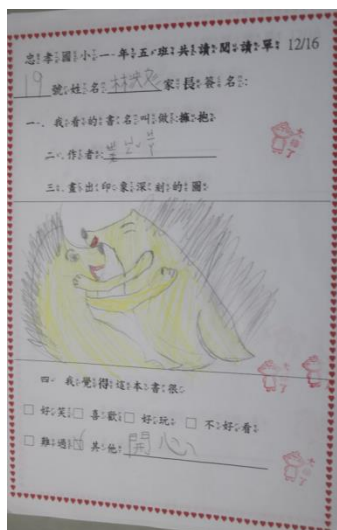 忠孝國小一年五班共讀閱讀單 12/16
19 號姓名 林 家長簽名:
一、我看的書名叫做擁抱
二、作者:
三、畫出印象深刻的圖
四、我覺得這本書很:
□好笑□喜歡□好玩 □不好看
□難過☑其他 開心